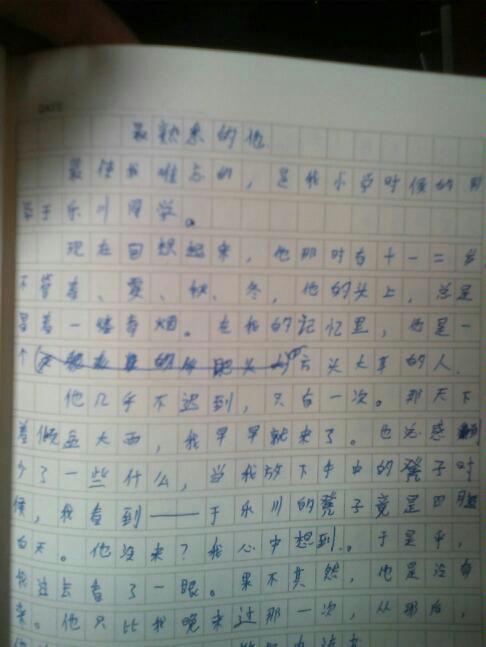 DATE
最熟悉的他
最使我难忘的，是我小学时候的同
桌于乐川同学。
现在回想起来，他那时有十一二岁
不管春、夏、秋、冬，他的头上，总是
冒着一缕青烟。在我的记忆里，他是一
个方头大耳的人.
他几乎不迟到，只有一次。那天下
着倾盆大雨，我早早就来了。也总感到
少了一些什么，当我放下手中的凳子时
候，我看到——于乐川的凳子竟是四腿
向天。他没来？我心中想到.于是乎，
我过去看了一眼。果不其然，他是没有
来。他只比我晚来过那一次，从那后，